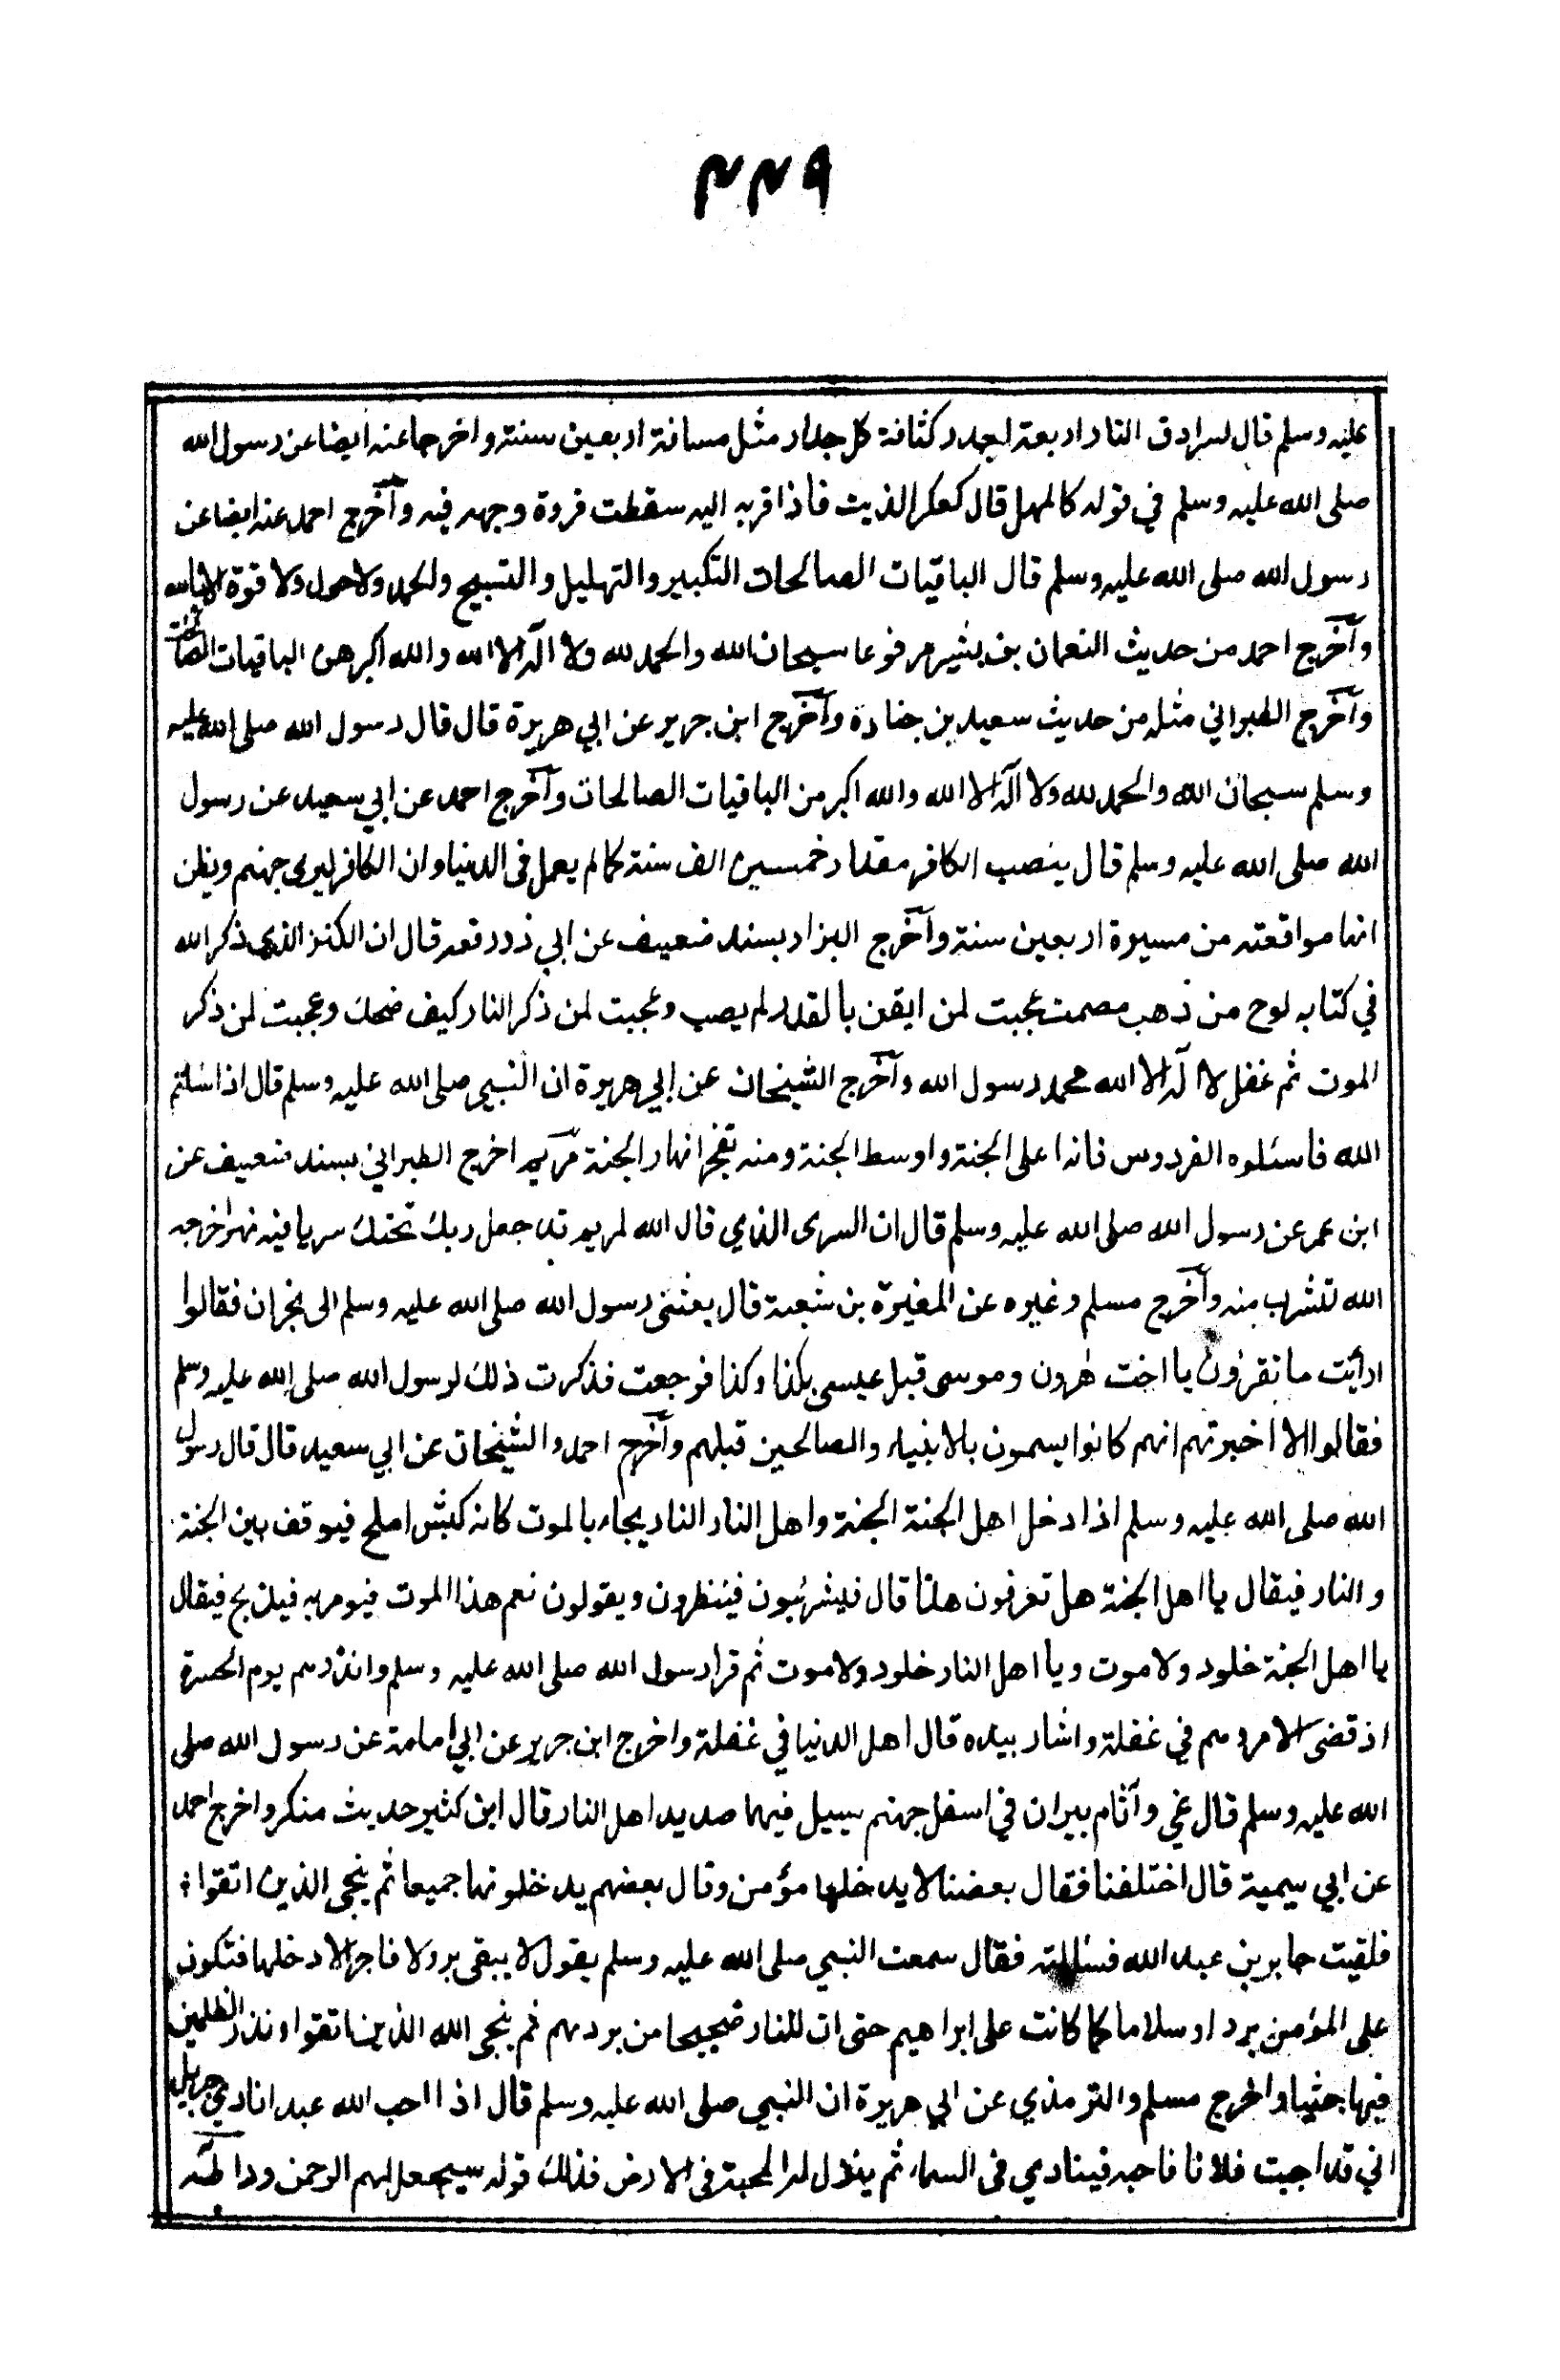 ٣٣٩
عليه وسلم قال لسرادق النار اربعة لجدر كثافة كل جدار مثل مسافة اربعين سنة واخرجا عنه ايضا عن رسول الله
صلى الله عليه وسلم في قوله كالمهل قال كعكر الزيت فاذا قربه اليه سقطت فروة وجهه فيه وآخرج احمد عنه ايضا عن
رسول الله صلى الله عليه وسلم قال الباقيات الصالحات التكبير والتهليل والتسبيح والحمد ولا حول ولا قوة الا بالله
وآخرج احمد من حديث النعمان بن بشير مرفوعا سبحان الله والحمد لله ولا اله الا الله والله اكبر هن الباقيات الصالحات
وآخرج الطبراني مثله من حديث سعيد بن جنادة وآخرج ابن جرير عن ابي هريرة قال قال رسول الله صلى الله عليه
وسلم سبحان الله والحمد لله ولا اله الا الله والله اكبر من الباقيات الصالحات وآخرج احمد عن ابي سعيد عن رسول
الله صلى الله عليه وسلم قال ينصب الكافر مقدار خمسين الف سنة كما لم يعمل في الدنيا وان الكافر ليرى جهنم ويظن
انها مواقعته من مسيرة اربعين سنة وآخرج البزار بسند ضعيف عن ابي ذر رفعه قال ان الكنز الذي ذكر الله
في كتابه لوح من ذهب مصمت عجبت لمن ايقن بالقدر لم يصب وعجبت لمن ذكر النار كيف ضحك وعجبت لمن ذكر
الموت ثم غفل لا اله الا الله محمد رسول الله وآخرج الشيخان عن ابي هريرة ان النبي صلى الله عليه وسلم قال اذا سئلتم
الله فاسئلوه الفردوس فانه اعلى الجنة واوسط الجنة ومنه تفجر انهار الجنة مريم اخرج الطبراني بسند ضعيف عن
ابن عمر عن رسول الله صلى الله عليه وسلم قال ان السرى الذي قال الله لمريم قد جعل ربك تحتك سريا فيه نهر اخرجه
الله لتشرب منه وآخرج مسلم وغيره عن المغيرة بن شعبة قال بعثنى رسول الله صلى الله عليه وسلم الى نجران فقالوا
ارأيت ما تقرؤن يا اخت هرون وموسى قبل عيسى بكذا وكذا فرجعت فذكرت ذلك لرسول الله صلى الله عليه وسلم
فقالوا الا اخبرتهم انهم كانوا يسمون بالانبياء والصالحين قبلهم وآخرج احمد والشيخان عن ابي سعيد قال قال رسول
الله صلى الله عليه وسلم اذا دخل اهل الجنة الجنة واهل النار النار يجاء بالموت كانه كبش املح فيوقف بين الجنة
والنار فيقال يا اهل الجنة هل تعرفون هذا قال فيشرئبون فينظرون ويقولون نعم هذا الموت فيومر به فيذبح فيقال
يا اهل الجنة خلود ولا موت ويا اهل النار خلود ولا موت ثم قرا رسول الله صلى الله عليه وسلم وانذرهم يوم الحسرة
اذ قضى الامر وهم في غفلة واشار بيده قال اهل الدنيا في غفلة واخرج ابن جرير عن ابي امامة عن رسول الله صلى
الله عليه وسلم قال غي وآثام بيران في اسفل جهنم يسيل فيها صديد اهل النار قال ابن كثير حديث منكر واخرج احمد
عن ابي سمية قال اختلفنا فقال بعضنا لا يدخلها مؤمن وقال بعضهم يدخلونها جميعا ثم ينجى الذين اتقوا
فلقيت جابر بن عبد الله فسئلته فقال سمعت النبي صلى الله عليه وسلم يقول لا يبقى بر ولا فاجر الا دخلها فتكون
على المؤمن بردا وسلاما كما كانت على ابراهيم حتى ان للنار ضجيجا من بردهم ثم ينجى الله الذين اتقوا ونذر الظلمين
فيها جثيا واخرج مسلم والترمذي عن ابي هريرة ان النبي صلى الله عليه وسلم قال اذا احب الله عبدا نادي جبريل
اني قد احببت فلانا فاحبه فينادي في السماء ثم ينزل له المحبة في الارض فذلك قوله سيجعل لهم الرحمن ودا طه